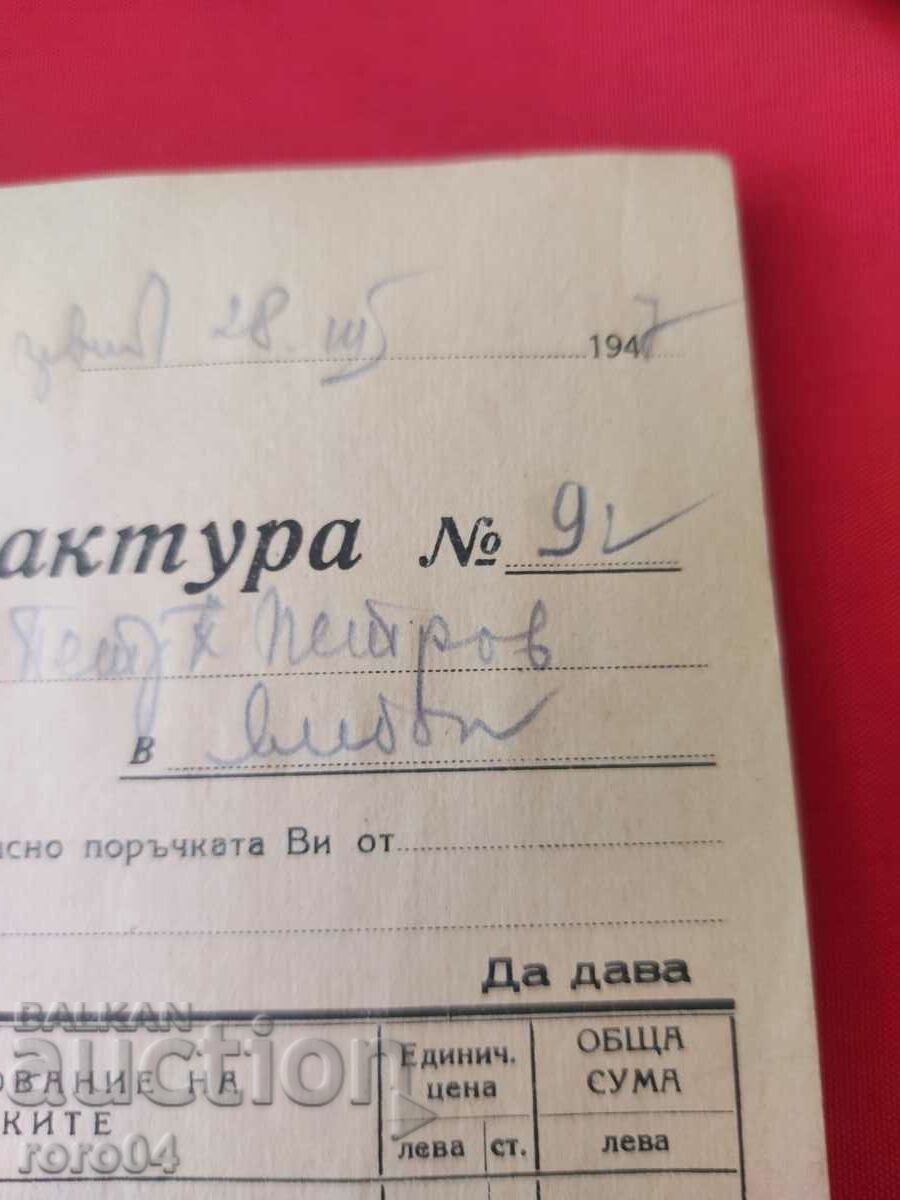 28. III 1947
актура № 92
Петър Петров
В
асно поръчката Ви от
Да дава
ОВАНИЕ НА
КИТЕ
Единич. цена
лева ст.
ОБЩА СУМА
лева
BALKAN
auction
roro04